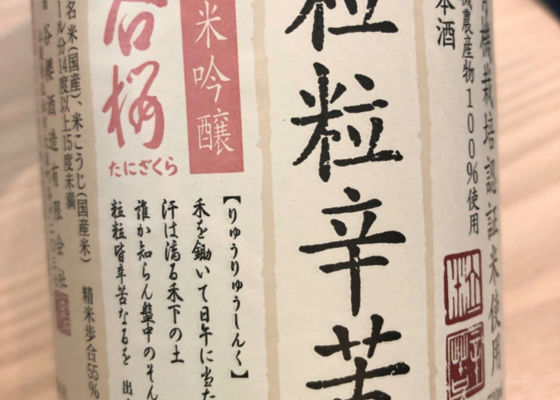 有機栽培認証米使用
機農産物100%使用
本酒
粒粒辛苦
米吟醸
谷桜
たにざくら
【りゅうりゅうしんく】
禾を鋤いて日午に当た
汗は滴る禾下の土
誰か知らん盤中のそん
粒粒皆辛苦なるを 出
名米(国産)、米こうじ(国産米)
精米歩合55%
ル分14度以上15度未満
谷櫻酒造有限会社